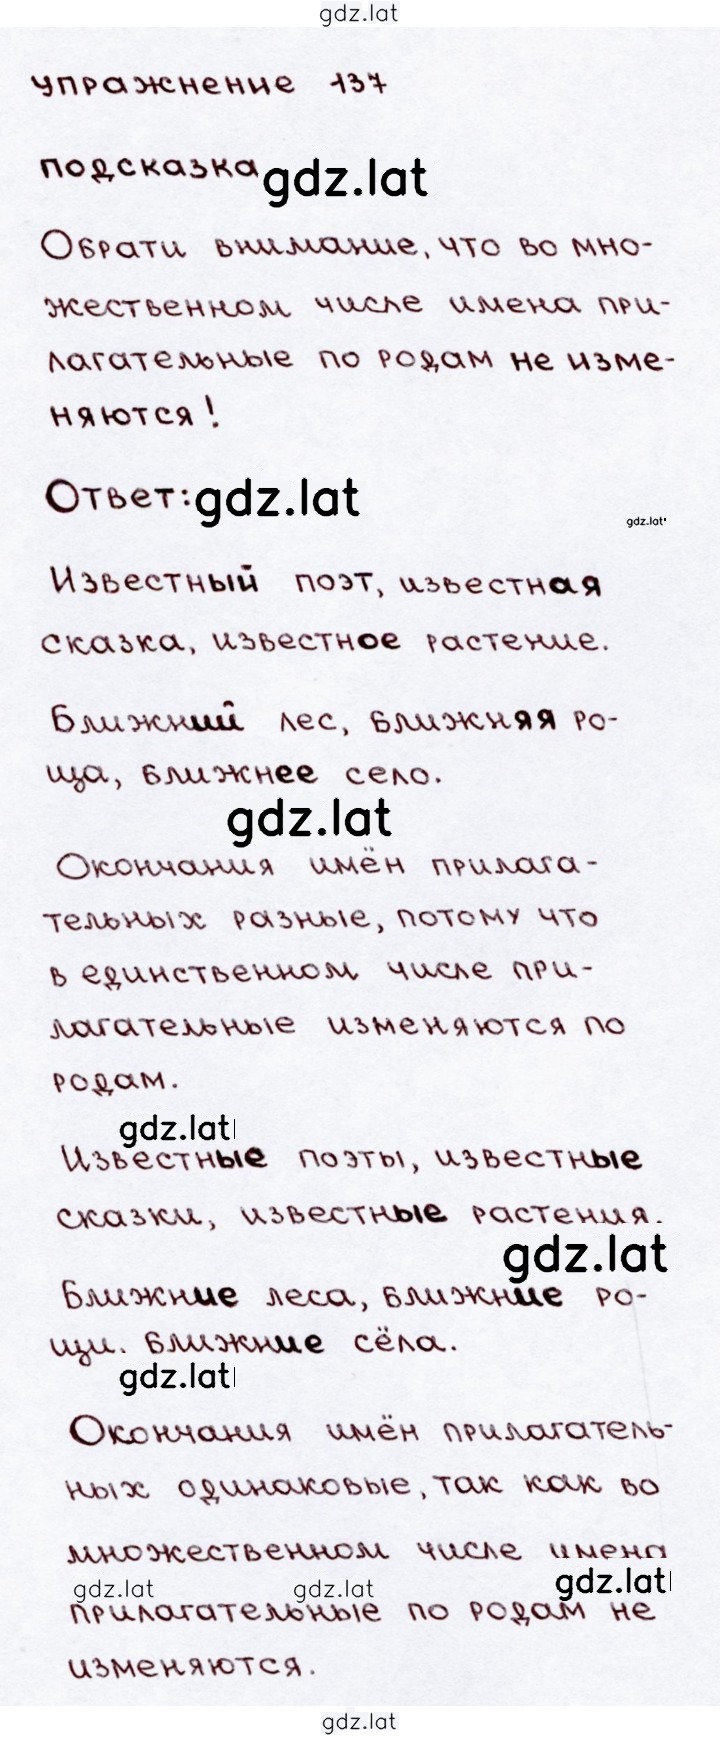 gdz.lat
упражнение 137
подсказка gdz.lat
Обрати внимание, что во мно-
жественном числе имена при-
лагательные по родам не изме-
няются!
Ответ: gdz.lat
gdz.lat
Известный поэт, известная
сказка, известное растение.
Ближний лес, ближняя ро-
ща, ближнее село.
gdz.lat
Окончания имён прилага-
тельных разные, потому что
в единственном числе при-
лагательные изменяются по
родам.
gdz.lat
Известные поэты, известные
сказки, известные растения.
gdz.lat
Ближние леса, ближние ро-
щи. ближние сёла.
gdz.lat
Окончания имён прилагатель-
ных одинаковые, так как во
множественном числе имена
gdz.lat gdz.lat gdz.lat
прилагательные по родам не
изменяются.
gdz.lat